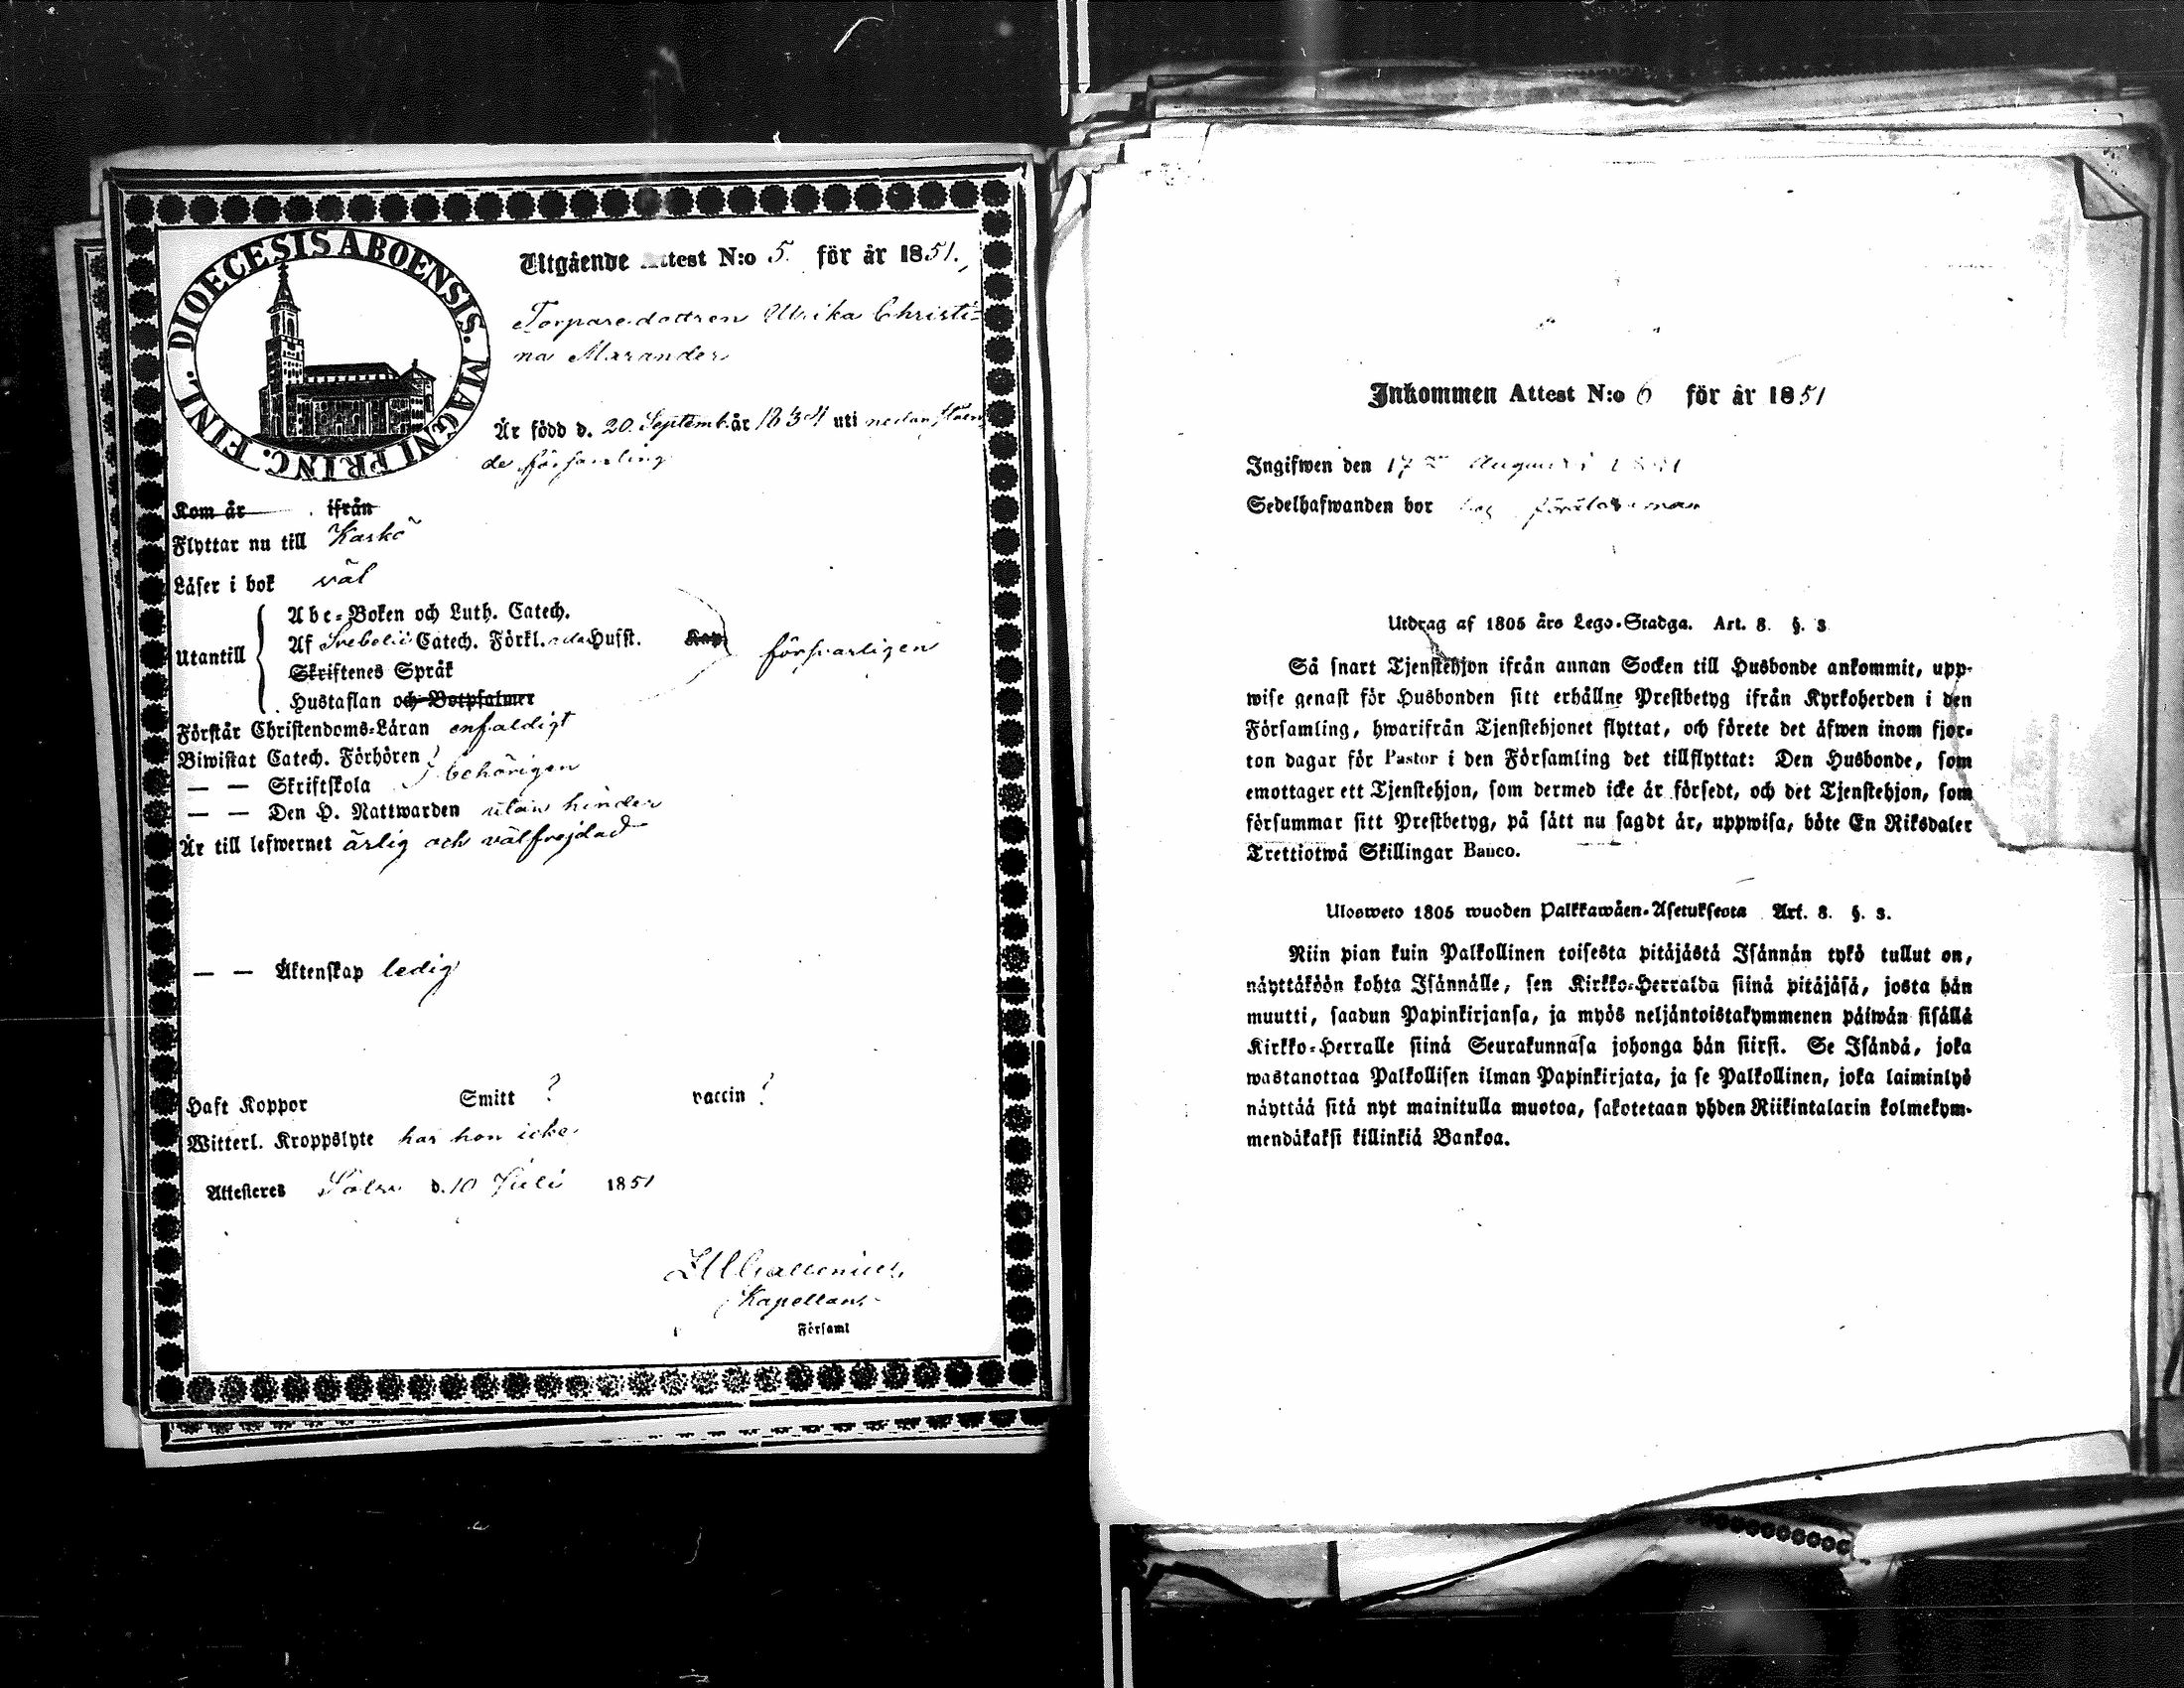 DIOECESIS ABOENSIS. MAGNI PRINC. FINL.
Utgående Attest N:o 5. för år 1851.
Torparedottren Ulrika Christi-
na Marander
Är född d. 20 Septemb. år 1834 uti nedanståen
de församling
Kom år ifrån
Flyttar nu till Kaskö
Läser i bok väl
Utantill
Abc-Boken och Luth. Catech.
Af Svebelii Catech. Förkl. Husst. Kap
Skriftenes Språk
Hustaflan och Botpsalmer
försvarligen
Förstår Christendoms-Läran enfaldigt
Biwistat Catech. Förhören
— — Skriftskola
behörigen
— — Den H. Nattwarden utan hinder
Är till lefwernet ärlig och välfrejdad
— — Äktenskap ledig
Haft Koppor Smitt ? vaccin ?
Witterl. Kroppslyte har hon icke
Attesteras d. 10 Juli 1851
Kapellan.
Församl
Inkommen Attest N:o 6 för år 1851
Ingifwen den 17 Augusti 1851
Sedelhafwanden bor
Utdrag af 1805 års Lego-Stadga. Art. 8. §. 3
Så snart Tjenstehjon ifrån annan Socken till Husbonde ankommit, upp-
wise genast för Husbonden sitt erhållne Prestbetyg ifrån Kyrkoherden i den
Församling, hwarifrån Tjenstehjonet flyttat, och förete det äfwen inom fjor-
ton dagar för Pastor i den Församling det tillflyttat: Den Husbonde, som
emottager ett Tjenstehjon, som dermed icke är försedt, och det Tjenstehjon, som
försummar sitt Prestbetyg, på sätt nu sagdt är, uppwisa, böte En Riksdaler
Trettiotwå Skillingar Banco.
Ulosweto 1805 wuoden Palkkawäen-Asetuksesta Art. 8. §. 3.
Niin pian kuin Palkollinen toisesta pitäjästä Isännän tykö tullut on,
näyttäköön kohta Isännälle, sen Kirkko-Herralda siinä pitäjäsä, josta hän
muutti, saadun Papinkirjansa, ja myös neljäntoistakymmenen päiwän sisällä
Kirkko-Herralle siinä Seurakunnasa johonga hän siirsi. Se Isändä, joka
wastanottaa Palkollisen ilman Papinkirjata, ja se Palkollinen, joka laiminlyö
näyttää sitä nyt mainitulla muotoa, sakotetaan yhden Riikintalarin kolmekym-
mendäkaksi killinkiä Bankoa.